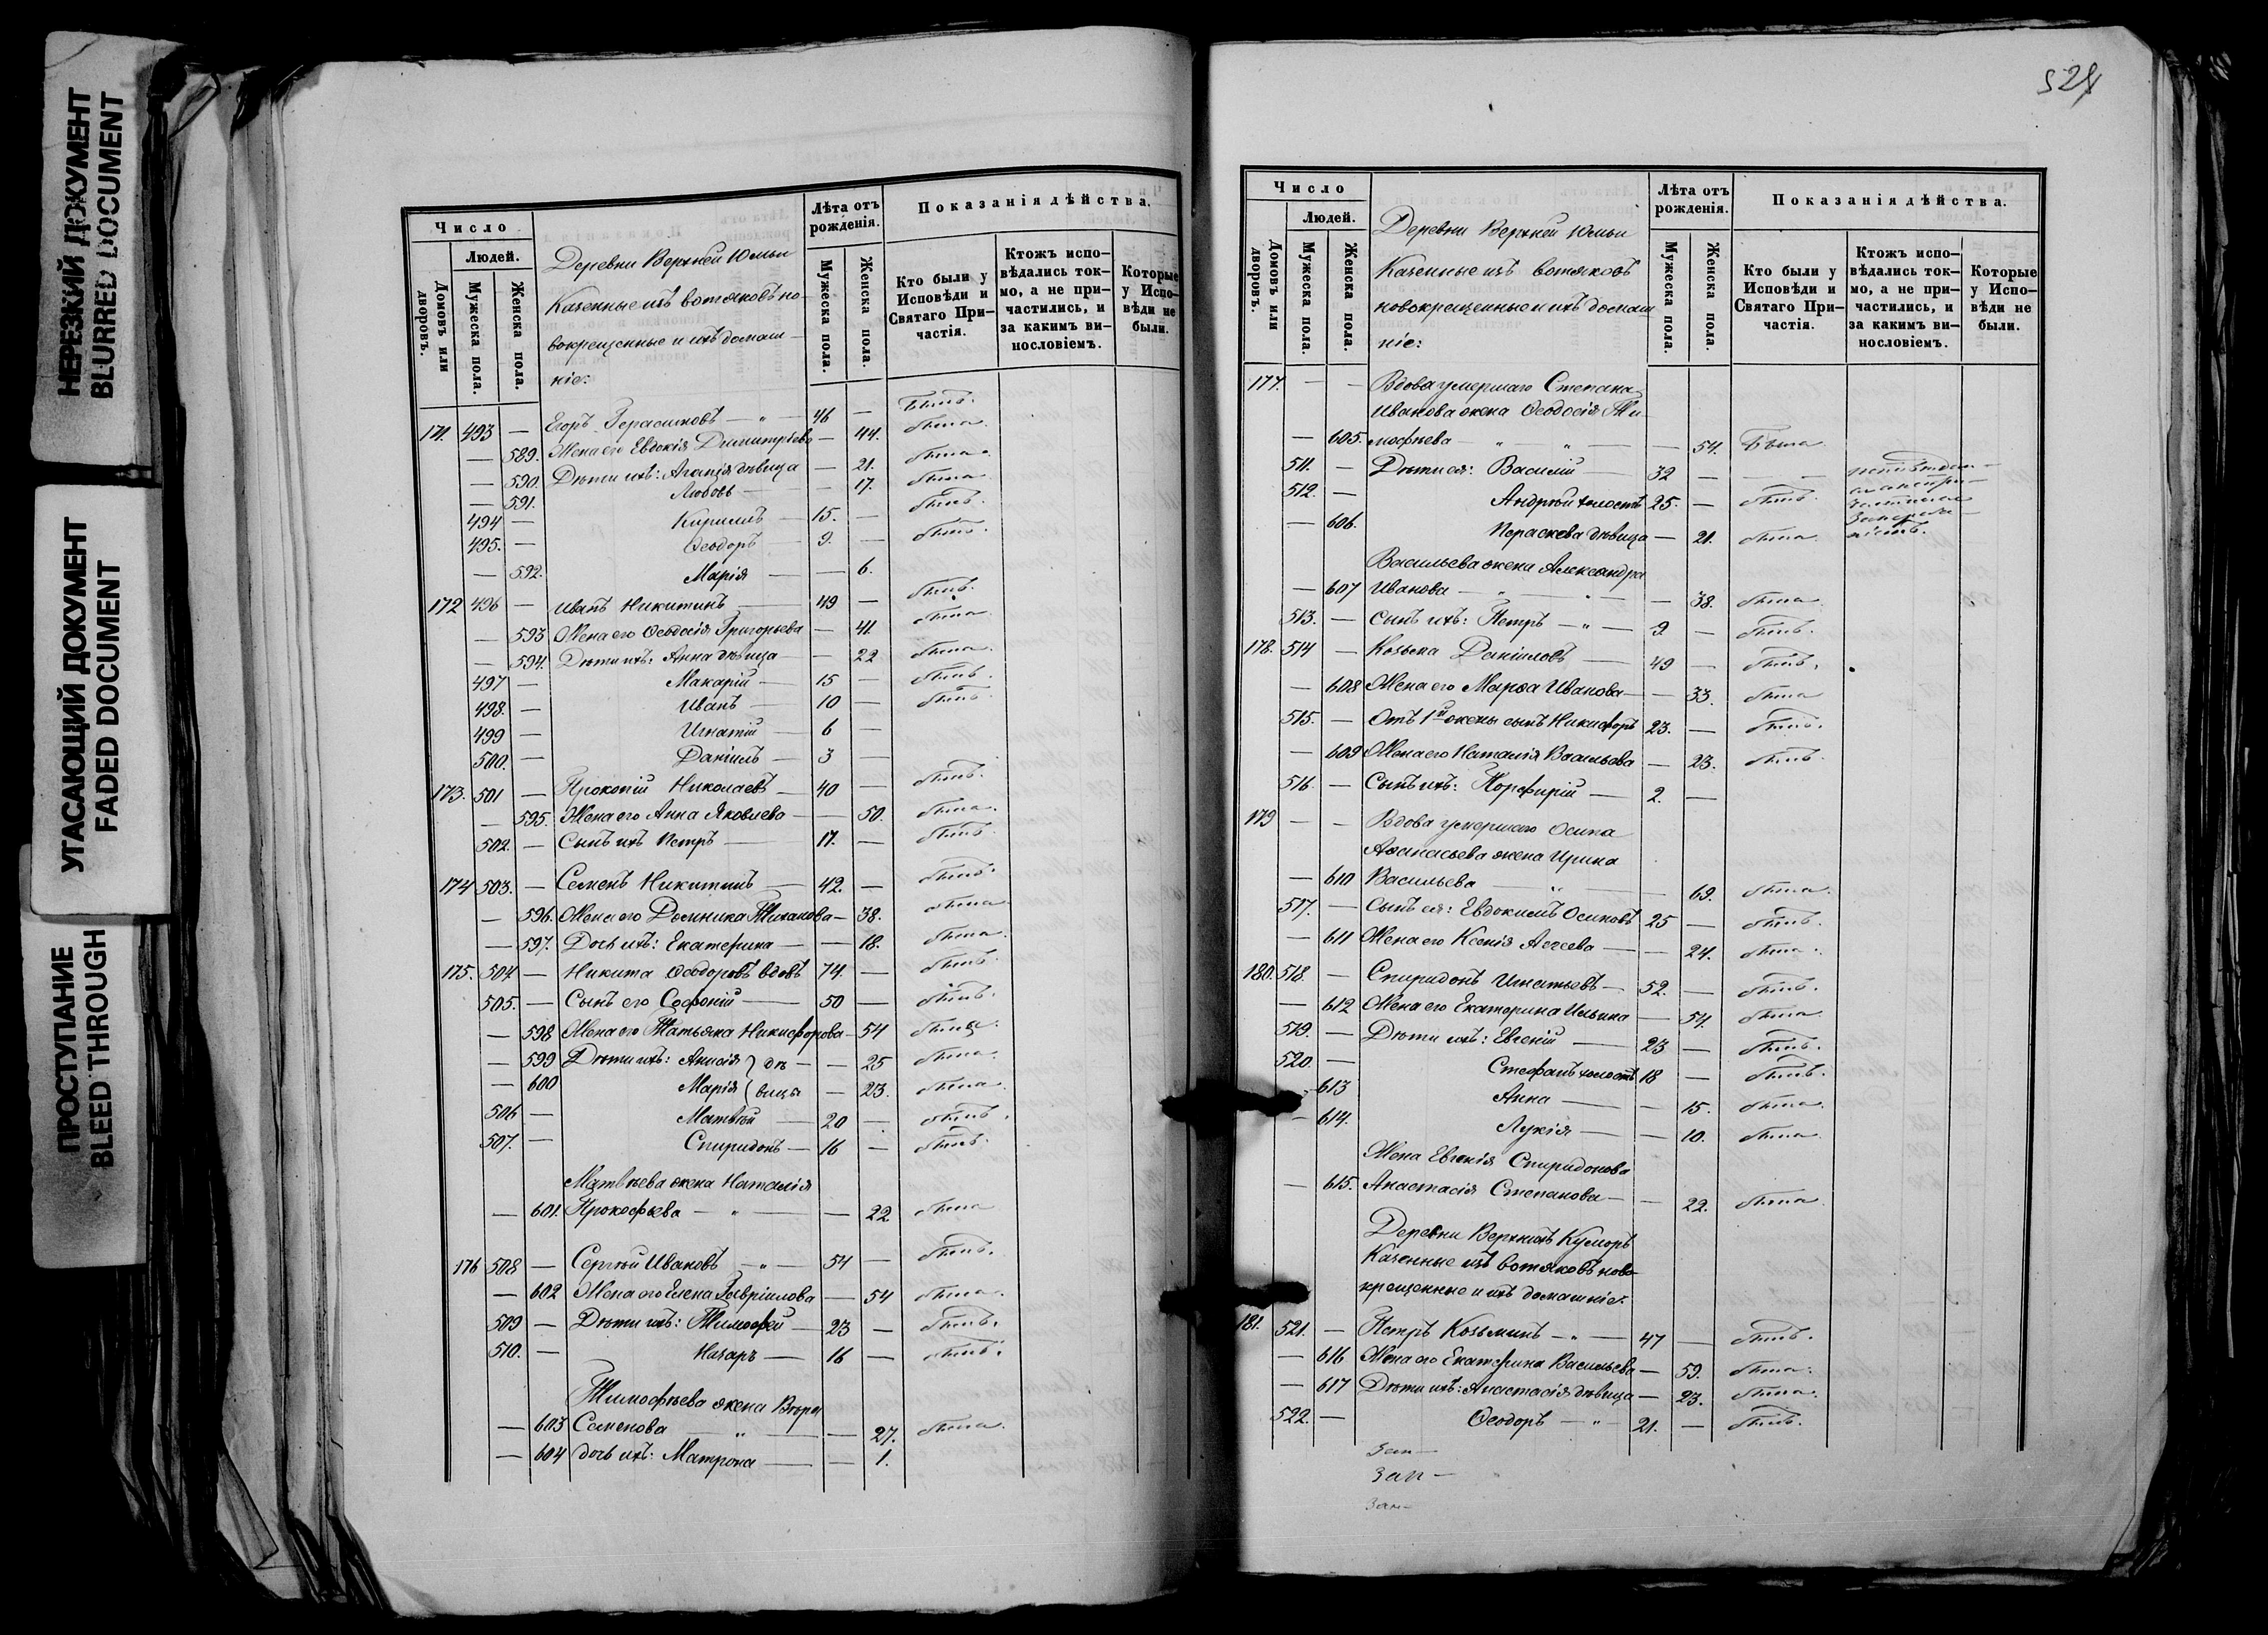 НЕРЕЗКИЙ ДОКУМЕНТ
BLURRED DOCUMENT
УГАСАЮЩИЙ ДОКУМЕНТ
FADED DOCUMENT
ПРОСТУПАНИЕ
BLEED THROUGH
Число
Людей.
Домовъ или дворовъ.
Мужеска пола.
Женска пола.
Деревни Верхней Юмьи
Казенные изъ вотяковъ но-
вокрещенные и ихъ домаш-
ніе:
Лѣта отъ рожденія.
Мужеска пола.
Женска пола.
Показанія дѣйства.
Кто были у Исповѣди и Святаго При-частія.
Ктожъ испо-вѣдались ток-мо, а не при-частились, и за какимъ ви-нословіемъ.
Которые у Испо-вѣди не были.
171. 493 — Егоръ Герасимовъ — " — 46 — былъ.
— 589. Жена его Евдокія Димитріева — 44. была.
— 590. Дѣти ихъ: Агапія дѣвица — 21. была.
— 591. Любовь — — 17. была
494 — Кириллъ — 15. — былъ.
495. — Ѳеодоръ — 9. — былъ.
— 592. Марія — — 6.
172 496 — Иванъ Никитинъ — 49 — былъ.
— 593 Жена его Ѳеодосія Григорьева — 41. была
— 594. Дѣти ихъ: Анна дѣвица — 22 была.
497 — Макарій — 15 — былъ.
498. — Иванъ — 10 — былъ.
499 — Игнатій — 6 —
500. — Даніилъ — 3 —
173. 501 — Прокопій Николаевъ — 40 — былъ.
— 595. Жена его Анна Яковлева — — 50. была.
502. — Сынъ ихъ Петръ — 17. — былъ.
174 503. — Семенъ Никитинъ — 42. — былъ.
— 596. Жена его Домника Тиханова — 38. была
— 597. Дочь ихъ: Екатерина — — 18. была.
175. 504 — Никита Ѳеодоровъ вдовъ 74. — былъ.
505. — Сынъ его Софоній — 50 — былъ.
— 598 Жена его Татьяна Никифорова — 54 была.
— 599 Дѣти ихъ: Анисія } дѣ — — 25 была.
— 600 Марія { вицы — 23. была.
506 — Матвѣй — 20 — былъ.
507. — Спиридонъ — 16 — былъ.
Матвѣева жена Наталія
— 601. Прокофьева — " — — 22 была
176 508 — Сергѣй Ивановъ — " — 54 — былъ.
— 602 Жена его Елена Гавріилова — 54 была.
509 — Дѣти ихъ: Тимофей — 23 — былъ.
510. — Назаръ — 16 — былъ.
Тимофѣева жена Вѣра
— 603 Семенова " — — 27. была.
— 604 дочь ихъ: Матрона — — 1.
524
Число
Людей.
Домовъ или дворовъ.
Мужеска пола.
Женска пола.
Деревни Верхней Юмьи
Казенные изъ вотяковъ
новокрещенные и ихъ домаш
ніе:
Лѣта отъ рожденія.
Мужеска пола.
Женска пола.
Показанія дѣйства.
Кто были у Исповѣди и Святаго При-частія.
Ктожъ испо-вѣдались ток-мо, а не при-частились, и за какимъ ви-нословіемъ.
Которые у Испо-вѣди не были.
177. — — Вдова умершаго Степана
Иванова жена Ѳеодосія Ти-
— 605. мофѣева — " — " — — 54. Была
511. — Дѣти ея: Василій — 32 — —
512. — Андрей холостъ 25. — былъ.
— 606. Параскева дѣвица — 21. была
Васильева жена Александра
— 607 Иванова — " — — 38. была
513. — Сынъ ихъ: Петръ — " — 9. — былъ.
178. 514 — Козьма Даниловъ — 49 — былъ.
— 608 Жена его Марѳа Иванова — — 33. была
515. — Отъ 1й жены сынъ Никифоръ 23. — былъ.
— 609 Жена его Наталія Васильева — 23. былъ.
516. — Сынъ ихъ: Порфирій — 2. —
179 — — Вдова умершаго Осипа
Аѳанасьева жена Ирина
— 610 Васильева — " — — 69. была.
517. — Сынъ ея: Евдокимъ Осиповъ 25 — былъ.
— 611 Жена его Ксенія Агеева — — 24. была.
180. 518. — Спиридонъ Игнатьевъ — 52. — былъ.
— 612 Жена его Екатерина Ильина — 54. была
519. — Дѣти ихъ: Евгеній — 23 — былъ.
520. — Стефанъ холостъ 18 — былъ.
— 613 Анна — — 15. была.
— 614. Лукія — — 10. была
Жена Евгенія Спиридонова
— 615. Анастасія Степанова — — 22. была
Деревни Верхнихъ Куморъ
Казенные изъ вотяковъ ново-
крещенные и ихъ домашніе:
181. 521. — Петръ Козьминъ — " — 47 — былъ.
— 616 Жена его Екатерина Васильева — 59. была.
— 617 Дѣти ихъ: Анастасія дѣвица — 23. была.
522. — Ѳеодоръ — " — 21. — былъ.
Зап —
Зап —
Зап —